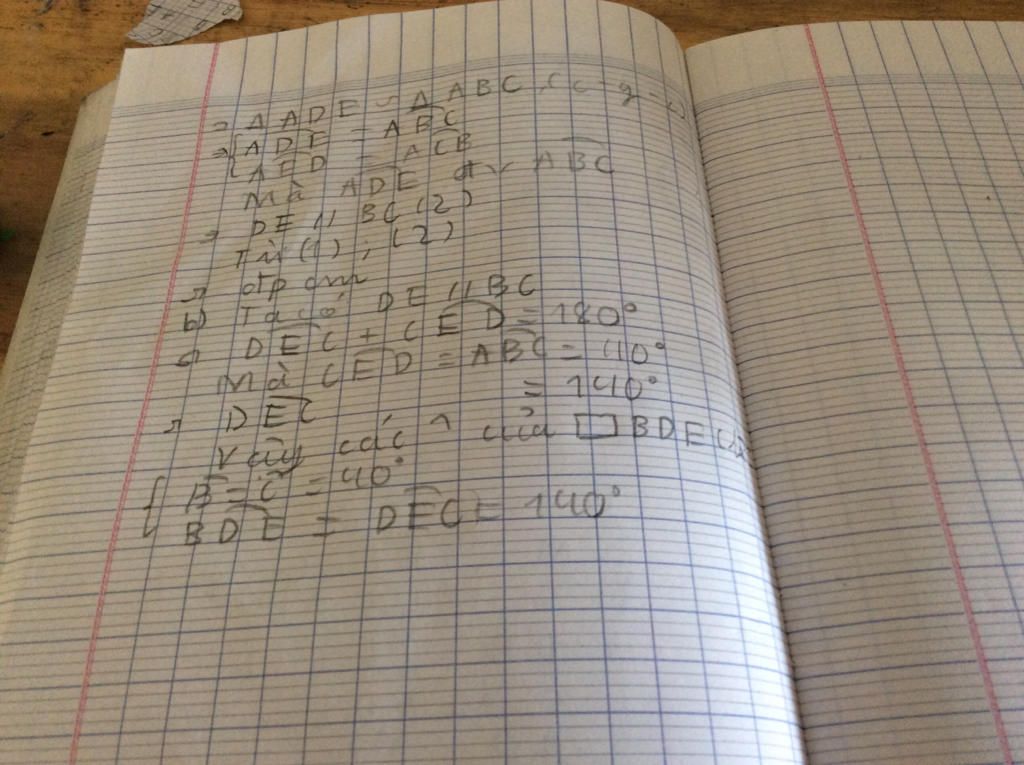 ⇒ Δ ADE ∽ Δ ABC (c-g-c)
⇒ { ADE = ABC
AED = ACB
Mà ADE ABC
⇒ DE // BC (2)
Từ (1), (2)
⇒ đpcm
b) Ta có DE // BC
⇒ DEC + CED = 180°
Mà CED = ABC = 40°
⇒ DEC = 140°
Vậy các ^ của □ BDEC
{ B = C = 40°
BDE = DEC = 140°